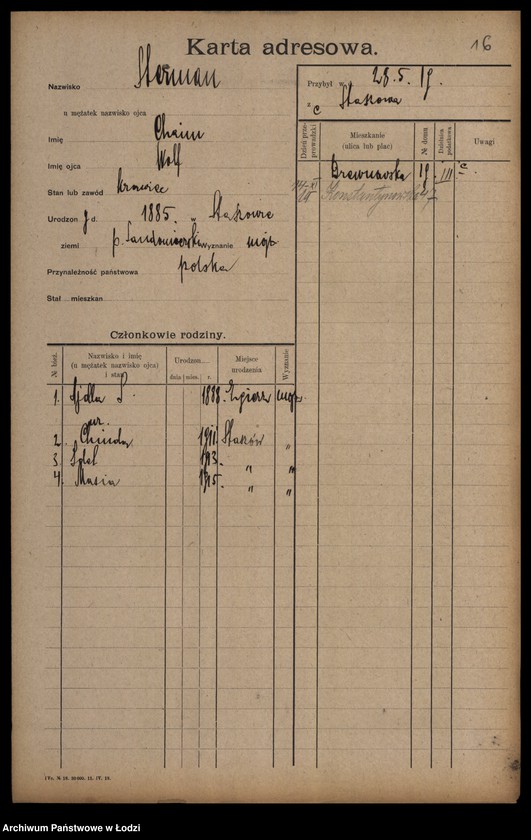 16
Karta adresowa.
Nazwisko Sterman
u mężatek nazwisko ojca
Imię Chaim
Imię ojca Wolf
Stan lub zawód krawiec
Urodzon y d. 1885. w Staszowie
ziemi p. Sandomierski wyznanie mojż
Przynależność państwowa polska
Stał mieszkan
Przybył w d. 28.5.19.
z Staszowa
Dzień przeprowadzki
Mieszkanie
(ulica lub plac)
№ domu
Dzielnica podatkowa
Uwagi
Brzezińska 19. III
Konstantynowska
Członkowie rodziny.
№ bież.
Nazwisko i imię
(u mężatek nazwisko ojca)
i stan
Urodzon
dnia mies. r.
Miejsce
urodzenia
Wyznanie
1. Ajdla 1888. Zgierz mojż.
2. Chinda 1911. Staszów "
3. 1913. " "
4. Masia 1915. " "
Archiwum Państwowe w Łodzi